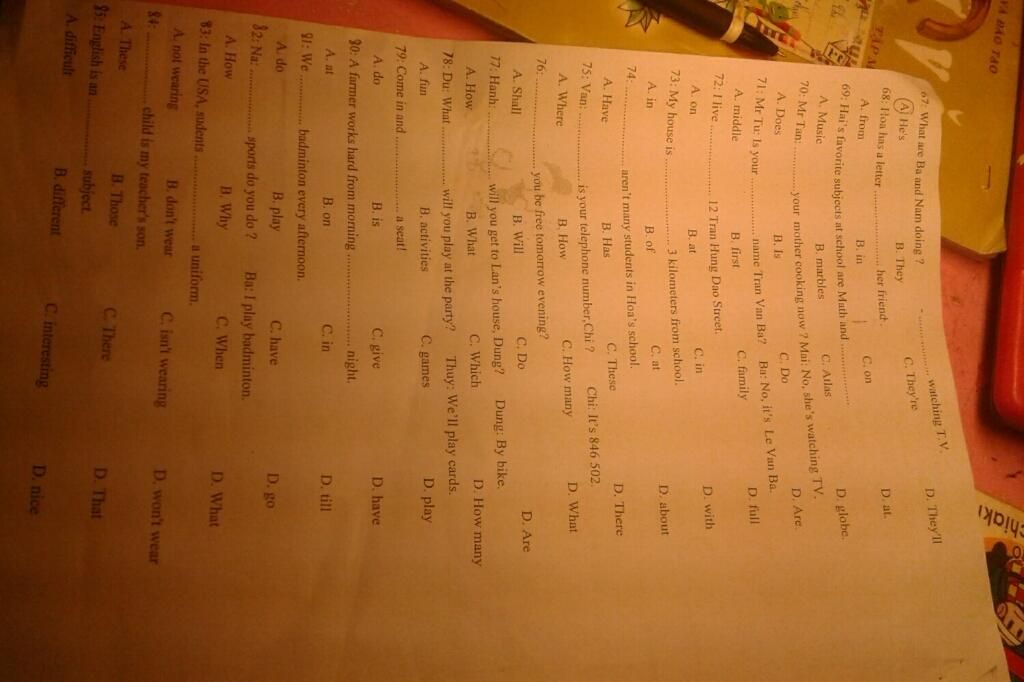 67: What are Ba and Nam doing ? - .............. watching T.V.
A. He's B. They C. They're D. They'll
68: Hoa has a letter .................. her friend.
A. from B. in C. on D. at.
69: Hai's favorite subjects at school are Math and ..................
A. Music B. marbles C. Atlas D. globe.
70: Mr Tan: .............your mother cooking now ? Mai: No, she's watching TV.
A. Does B. Is C. Do D. Are.
71: Mr Tu: Is your ................ name Tran Van Ba? Ba: No, it's Le Van Ba.
A. middle B. first C. family D. full
72: I live .................. 12 Tran Hung Dao Street.
A. on B. at C. in D. with
73: My house is .................. 3 kilometers from school.
A. in B. of C. at D. about
74: .................. aren't many students in Hoa's school.
A. Have B. Has C. These D. There
75: Van: ................ is your telephone number,Chi ? Chi: It's 846 502.
A. Where B. How C. How many D. What
76: ........................ you be free tomorrow evening?
A. Shall B. Will C. Do D. Are
77: Hanh: ................ will you get to Lan's house, Dung? Dung: By bike.
A. How B. What C. Which D. How many
78: Du: What ................ will you play at the party? Thuy: We'll play cards.
A. fun B. activities C. games D. play
79: Come in and .................. a seat!
A. do B. is C. give D. have
80: A farmer works hard from morning .................. night.
A. at B. on C. in D. till
81: We ............ badminton every afternoon.
A. do B. play C. have D. go
82: Na: ................ sports do you do ? Ba: I play badminton.
A. How B. Why C. When D. What
83: In the USA, sudents ................ a uniform.
A. not wearing B. don't wear C. isn't wearing D. won't wear
84: .................. child is my teacher's son.
A. These B. Those C. There D. That
85: English is an ................ subject.
A. difficult B. different C. interesting D. nice